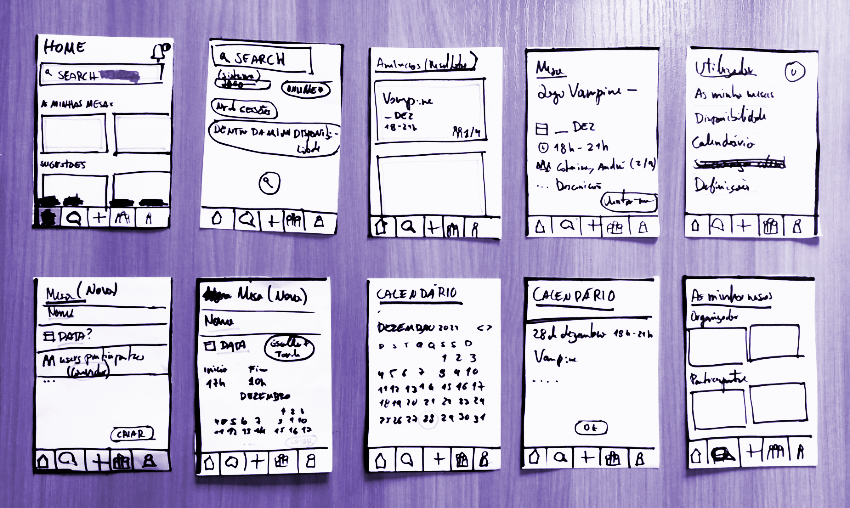 HOME
SEARCH
AS MINHAS MESAS
SUGESTÕES
SEARCH
(sistema)
JOGO
ONLINE
Nº DE SESSÕES
DENTRO DA MINHA DISPONIBI-
lidade
Anúncios (Resultados)
Vampire
_ DEZ
18-21h
1/4
Mesa
Jogo Vampire -
_ DEZ
18h - 21h
Catarina, André (2/4)
... Descrição
Juntar-me
Utilizador
U
As minhas mesas
Disponibilidade
Calendário
Definições
Mesa (Nova)
Nome
DATA?
users participantes
(Convidar)
...
CRIAR
Mesa (Nova)
Nome
DATA
Escolher
Tarde
Início Fim
17h 20h
DEZEMBRO
1 2 3
4 5 6 7 8 9 10
11 12 13 14 15 16 17
CALENDÁRIO
DEZEMBRO 2021 < >
D S T Q Q S S D
1 2 3
4 5 6 7 8 9 10
11 12 13 14 15 16 17
18 19 20 21 22 23 24
25 26 27 28 29 30 31
CALENDÁRIO
28 de dezembro 18h-21h
Vampire
....
OK
As minhas mesas
Organizador
Participante